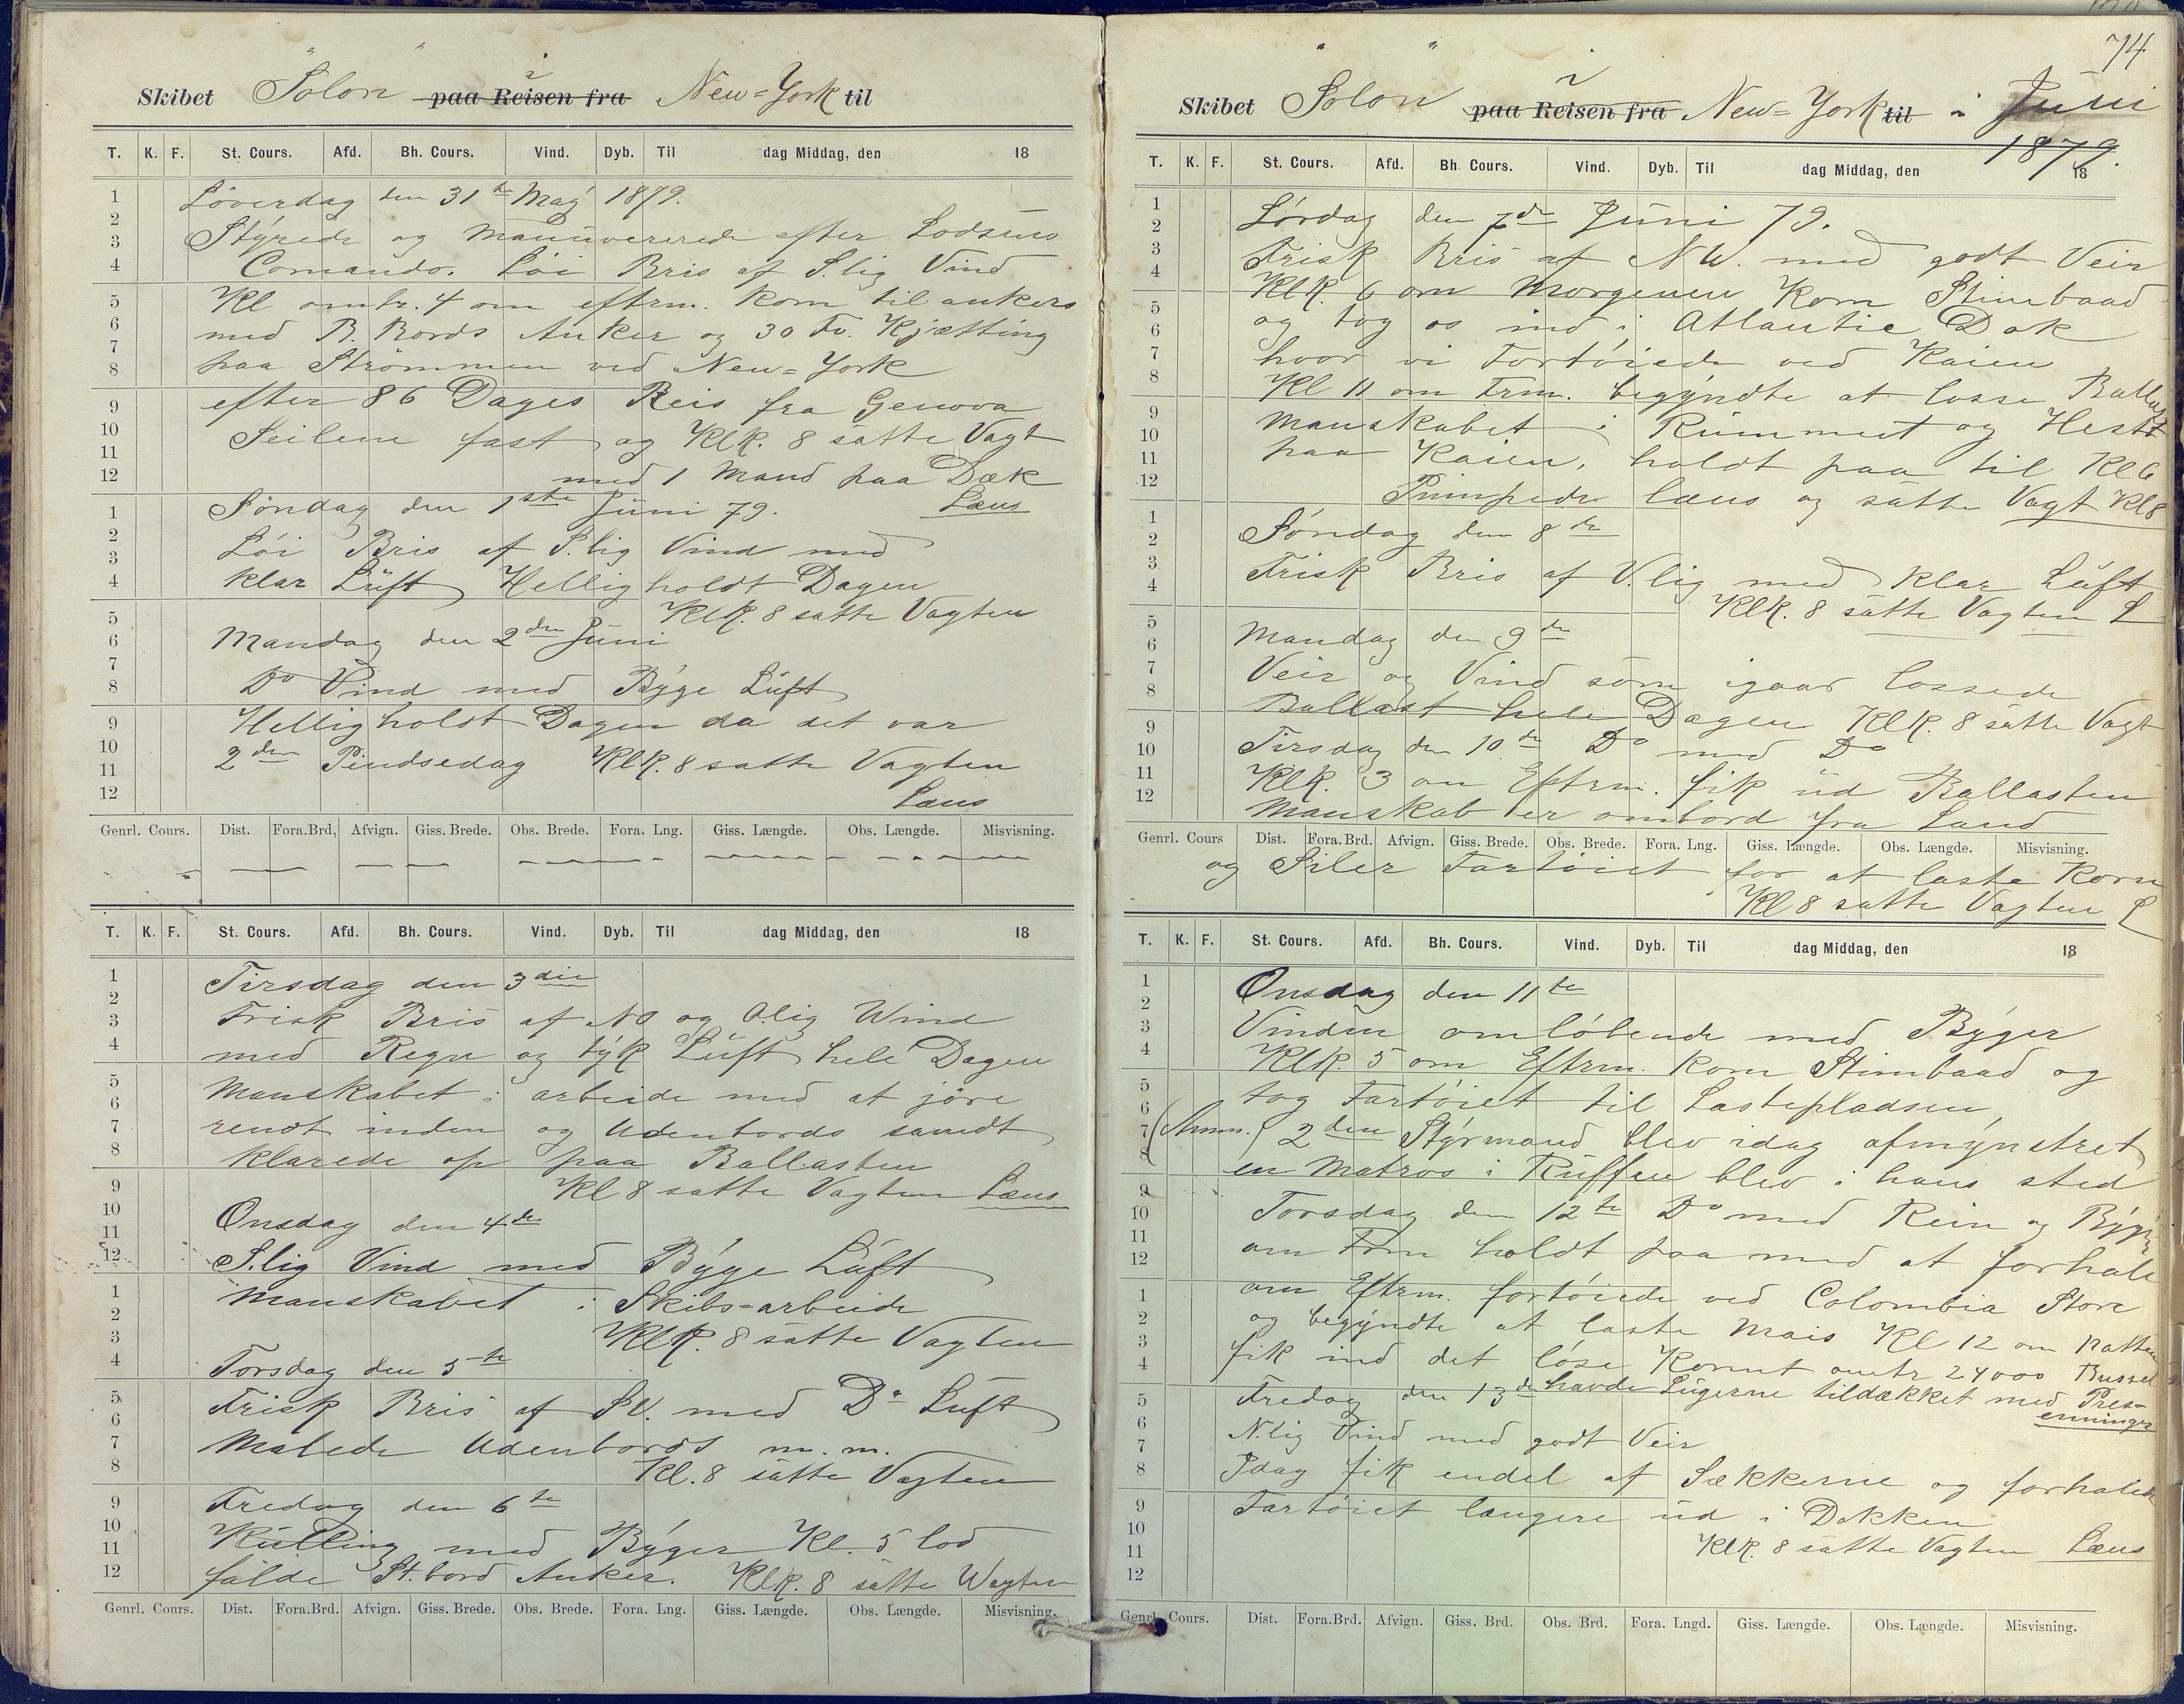 Skibet "Solon" paa Reisen fra i New=York til
T. K. F. St. Cours. Afd. Bh. Cours. Vind. Dyb. Til dag Middag, den 18
1 2 3 4 5 6 7 8 9 10 11 12
Löverdag den 31te Maÿ 1879.
Stÿrede og Manüvererede efter Lodsens
Comando. Löi Bris af S.lig Vind
Kl omtr. 4 om eftrm. kom til ankers
med B. Bords Anker og 30 Fv. Kjætting
paa Strömmen ved New=York
efter 86 Dages Reis fra Genova
Seilene fast og Klk. 8 satte Vagt
med 1 Mand paa Dæk
Læns
1 2 3 4 5 6 7 8 9 10 11 12
Söndag den 1ste Jüni 79.
Löi Bris af S.lig Vind med
klar Lüft Helligholdt Dagen
Klk. 8 satte Vagten
Mandag den 2den Jüni
Do Vind med Bÿge Lüft
Helligholdt Dagen da det var
2den Pindsedag Klk. 8 satte Vagten
Læns
Genrl. Cours. Dist. Fora.Brd, Afvign. Giss. Brede. Obs. Brede. Fora. Lng. Giss. Længde. Obs. Længde. Misvisning.
T. K. F. St. Cours. Afd. Bh. Cours. Vind. Dyb. Til dag Middag, den 18
1 2 3 4 5 6 7 8 9 10 11 12
Tirsdag den 3die
Frisk Bris af NO og O.lig Wind
med Regn og tÿk Lüft hele Dagen
Manskabet i arbeide med at jöre
rendt inden og Udenbords samdt
klarede op paa Ballasten
Kl 8 satte Vagten Læns
Onsdag den 4de
S.lig Vind med Bÿge Lüft
1 2 3 4 5 6 7 8 9 10 11 12
Manskabet i Skibs=arbeide
Klk. 8 satte Vagten
Torsdag den 5te
Frisk Bris af SV. med Do Lüft
Malede Udenbords m.m.
Kl. 8 satte Vagten
Fredag den 6te
Külling med Bÿger Kl. 5 lod
falde St.bord Anker. Klk. 8 satte Wagten
Genrl. Cours. Dist. Fora.Brd. Afvign. Giss. Brede. Obs. Brede. Fora. Lng. Giss. Længde. Obs. Længde. Misvisning.
74
Skibet "Solon" paa Reisen fra i New=York til i Juni
1879.
T. K. F. St. Cours. Afd. Bh. Cours. Vind. Dyb. Til dag Middag, den 18
1 2 3 4 5 6 7 8 9 10 11 12
Lördag den 7de Jüni 79.
Frisk Bris af NW. med godt Veir
Klk. 6 om Morgenen kom Stimbaad
og tog os ind i Atlantic Dok
hvor vi Fortöiede ved Kaien
Kl 11 om Frm. begÿndte at losse Ballast
Manskabet i Rümmet og Hest
paa Kaien, holdt paa til Kl 6
Pumpede læns og satte Vagt Kl 8
1 2 3 4 5 6 7 8 9 10 11 12
Söndag den 8de
Frisk Bris af V.lig med klar Lüft
Klk. 8 satte Vagten L
Mandag den 9de
Veir og Vind som igaar lossede
Ballast hele Dagen Klk. 8 satte Vagt
Tirsdag den 10de Do med Do
Klk. 3 om Eftrm. fik üd Ballasten
Manskab er ombord fra Land
Genrl. Cours Dist. Fora.Brd. Afvign. Giss. Brede. Obs. Brede. Fora. Lng. Giss. Længde. Obs. Længde. Misvisning.
og Siler Fartöiet for at laste Korn
Kl 8 satte Vagten L
T. K. F. St. Cours. Afd. Bh. Cours. Vind. Dyb. Til dag Middag, den 18
1 2 3 4 5 6 7 8 9 10 11 12
Onsdag den 11te
Vinden omlöbende med Bÿger
Klk. 5 om Eftrm. kom Stimbaad og
tog Fartöiet til Lastepladsen,
(Anm.) 2den Stÿrmand blev idag afmÿnstret
en Matros i Rüffen blev i hans sted
Torsdag den 12te Do med Rein og Bÿger
om Frm holdt paa med at forhale
1 2 3 4 5 6 7 8 9 10 11 12
om Eftrm. fortöiede ved Colombia Store
og begÿndte at laste Mais Kl 12 om Natten
fik ind det löse Kornt omtr 24000 Bussel
havde Lügerne tildækket med Pres-
enninger
Fredag den 13de
N.lig Vind med godt Veir
Idag fik endel af Sækkerne og forhalede
Fartöiet længere üd i Dokken
Klk. 8 satte Vagten Læns
Genrl. Cours. Dist. Fora.Brd. Afvign. Giss. Brd. Obs. Brd. Fora. Lngd. Giss. Længde. Obs. Længde. Misvisning.